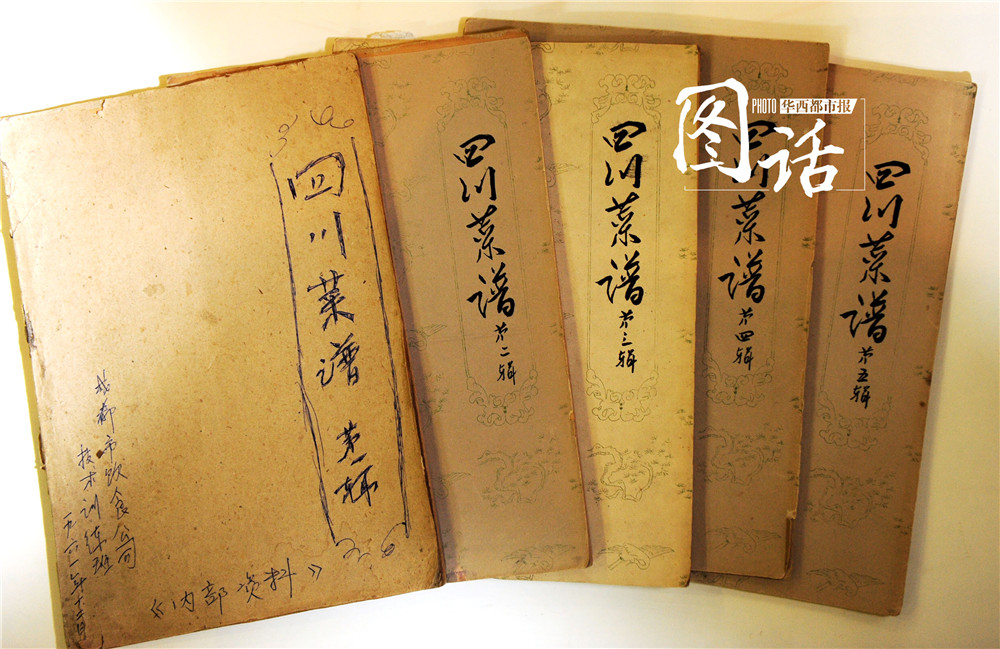 四川菜谱 第一辑
成都市饮食公司
技术训练班
一九六一年十二月
《内部资料》
四川菜谱
第二辑
四川菜谱
第三辑
四川菜谱
第四辑
四川菜谱
第五辑
图话
PHOTO 华西都市报